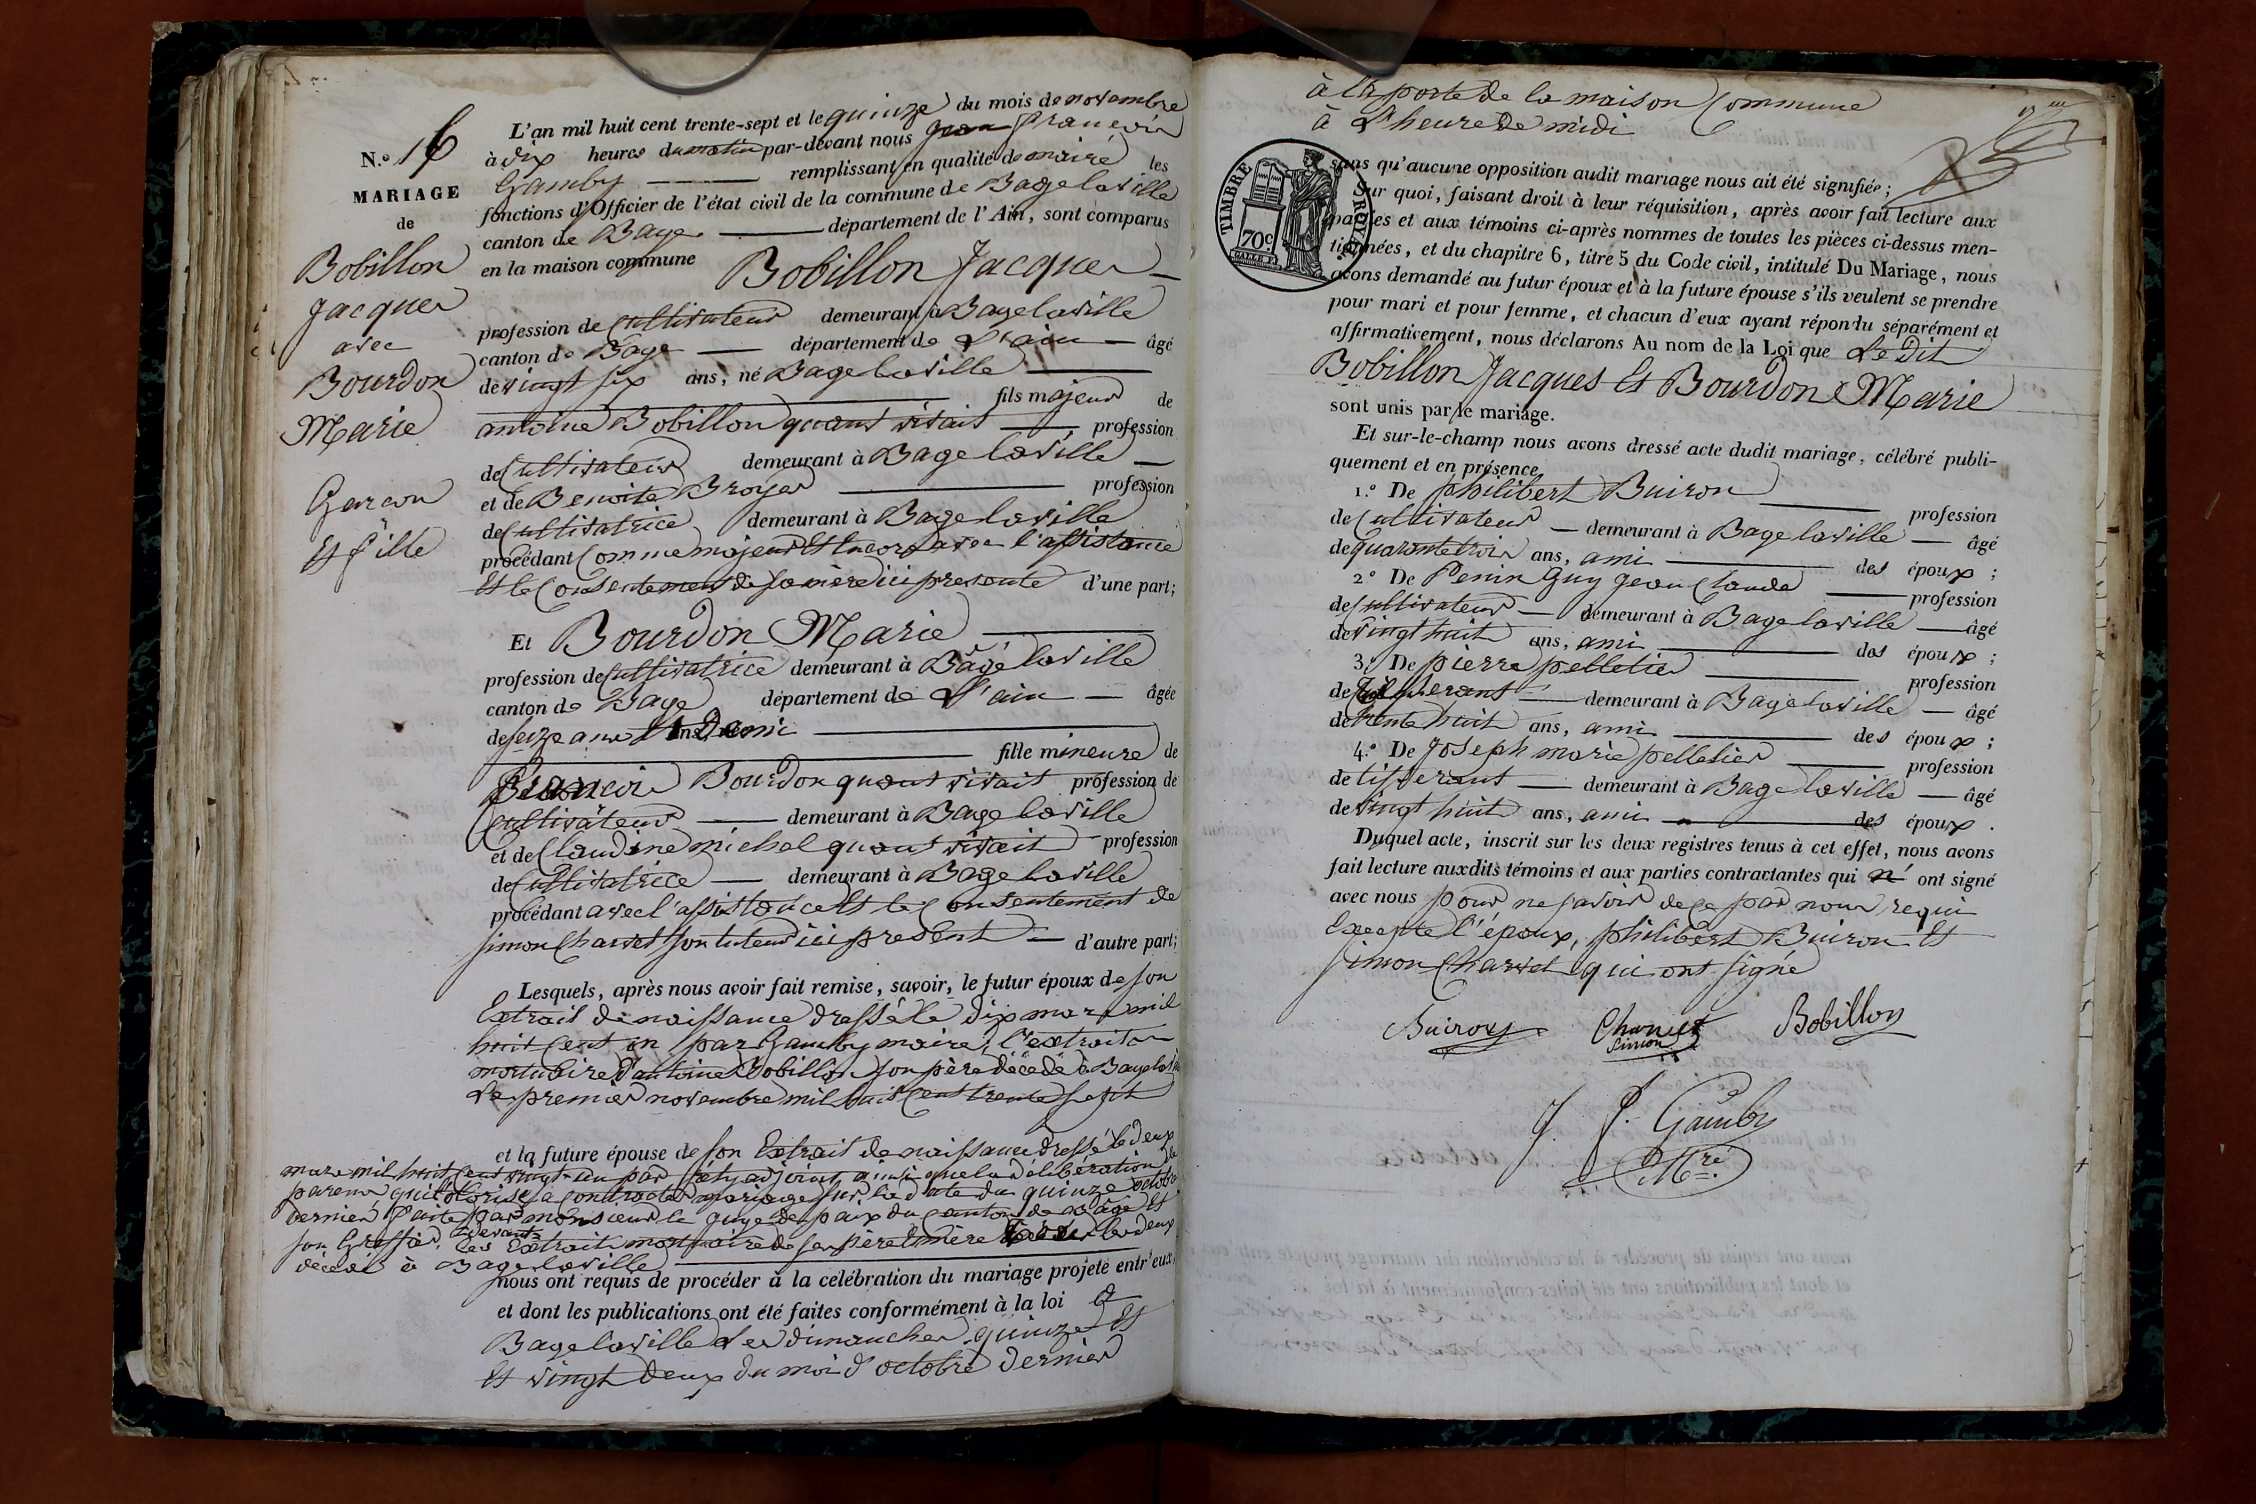 N.º 16
MARIAGE
de
Bobillon
Jacques
avec
Bourdon
Marie
Garcon
et fille
L'an mil huit cent trente-sept et le quinze du mois de novembre
à dix heures du matin par-devant nous Jean francois
Gamby remplissant en qualité de maire les
fonctions d'Officier de l'état civil de la commune de Bage laville
canton de Bage département de l'Ain, sont comparus
en la maison commune Bobillon Jacques
profession de Cultivateur demeurant à Bage laville
canton de Bage département de L'ain âgé
de vingt six ans, né Bage laville
fils majeur de
antoine Bobillon quant vivait profession
de Cultivateur demeurant à Bage laville
et de Benoite Broyer profession
de Cultivatrice demeurant à Bage laville
procédant Comme majeur et Encore avec l'assistance
et le Consentement de sa mère ici presente d'une part;
Et Bourdon Marie
profession de Cultivatrice demeurant à Bagé laville
canton de Bage département de L'ain âgée
de seize ans et demi
fille mineure de
francois Bourdon quant vivait profession de
Cultivateur demeurant à Bage laville
et de Claudine michel quant vivait profession
de Cultivatrice demeurant à Bage laville
procédant avec l'assistance et le Consentement de
simon Charvet son tuteur ici present d'autre part;
Lesquels, après nous avoir fait remise, savoir, le futur époux de son
Extrait de naissance dressé le dix mars mil
huit Cent on par Gamby maire, l'extrait
mortuaire d'antoine Bobillon son père décédé à Bage laville
Le premier novembre mil huit Cent trente sept
et la future épouse de son Extrait de naissance dressé le deux
mars mil huit Cent vingt un par adjoint, ainsi que la délibération de
parens qui l'autorise a Contracter mariage sur la date du quinze octobre
dernier faite par monsieur le juge de paix du canton de Bâgé et
son Greffier, les Extraits mortuaire de ses père et mère les deux
décédé à Bage laville
nous ont requis de procéder à la célébration du mariage projeté entr'eux,
et dont les publications ont été faites conformément à la loi à
Bage laville Les dimanches quinze et
et vingt deux du moi d'octobre dernier
à la porte de la maison Commune
à L'heure de midi
TIMBRE ROYAL
70c
sans qu'aucune opposition audit mariage nous ait été signifiée;
Sur quoi, faisant droit à leur réquisition, après avoir fait lecture aux
parties et aux témoins ci-après nommes de toutes les pièces ci-dessus men-
tionnées, et du chapitre 6, titre 5 du Code civil, intitulé Du Mariage, nous
avons demandé au futur époux et à la future épouse s'ils veulent se prendre
pour mari et pour femme, et chacun d'eux ayant répondu séparément et
affirmativement, nous déclarons Au nom de la Loi que Le dit
Bobillon Jacques et Bourdon Marie
sont unis par le mariage.
Et sur-le-champ nous avons dressé acte dudit mariage, célébré publi-
quement et en présence
1.º De philibert Buiron profession
de Cultivateur demeurant à Bage laville âgé
de quarante trois ans, ami des époux;
2º De Penin Guy Jean Claude profession
de Cultivateur demeurant à Bage laville âgé
de vingt huit ans, ami des époux;
3.º De pierre pelletier profession
de demeurant à Bage laville âgé
de trente huit ans, ami des époux;
4.º De Joseph marie pelletier profession
de tisserant demeurant à Bage laville âgé
de vingt huit ans, ami des époux.
Duquel acte, inscrit sur les deux registres tenus à cet effet, nous avons
fait lecture auxdits témoins et aux parties contractantes qui n' ont signé
avec nous pour ne savoir de ce par nous requis
Excepté l'époux, philibert Buiron et
simon Charvet qui ont signé
Buiron Charvet Bobillon
Simon
J. f. Gamby
Mre